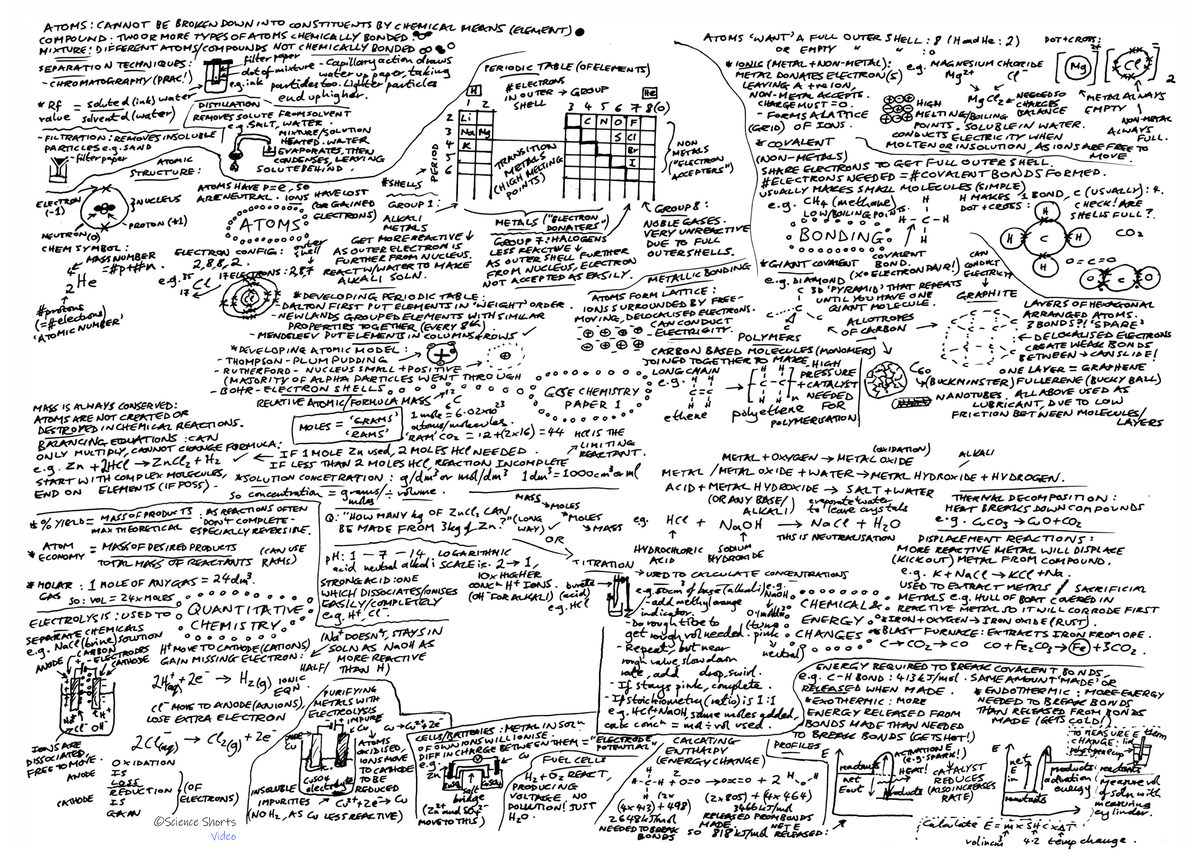 ATOMS: CANNOT BE BROKEN DOWN INTO CONSTITUENTS BY CHEMICAL MEANS (ELEMENT)
COMPOUND: TWO OR MORE TYPES OF ATOMS CHEMICALLY BONDED
MIXTURE: DIFFERENT ATOMS/COMPOUNDS NOT CHEMICALLY BONDED
SEPARATION TECHNIQUES:
- CHROMATOGRAPHY (PRAC!)
filter paper
dot of mixture - Capillary action draws
e.g. ink
water up paper, taking
particles too. Lighter particles
end up higher.
* Rf value = solute (ink) / solvent (water)
DISTILLATION
REMOVES SOLUTE FROM SOLVENT
e.g. SALT, WATER.
MIXTURE/SOLUTION
HEATED. WATER
EVAPORATES, THEN
CONDENSES, LEAVING
SOLUTE BEHIND.
- FILTRATION: REMOVES INSOLUBLE
PARTICLES e.g. SAND
filter paper
ATOMIC
STRUCTURE:
ELECTRON
(-1)
NUCLEUS
PROTON (+1)
NEUTRON (0)
ATOMS HAVE P=e, SO
ARE NEUTRAL. IONS
HAVE LOST
(OR GAINED
ELECTRONS)
ATOMS
CHEM SYMBOL:
MASS NUMBER
= #p + #n
4
He
2
#protons
(=#electrons)
'ATOMIC NUMBER'
ELECTRON CONFIG: outer shell
2,8,8,2
e.g. 35 Cl 17 17 ELECTRONS: 2,8,7
PERIODIC TABLE (OF ELEMENTS)
# ELECTRONS
IN OUTER → GROUP
SHELL
H
He
1 2
3 4 5 6 7 8(0)
2
3
4
5
6
Li
Na Mg
K
C N O F
S Cl
Br
I
PERIOD
#SHELLS
TRANSITION
METALS
(HIGH MELTING
POINTS)
NON
METALS
("ELECTRON
ACCEPTERS")
METALS ("ELECTRON
DONATERS")
GROUP 1:
ALKALI
METALS
GET MORE REACTIVE ↓
AS OUTER ELECTRON IS
FURTHER FROM NUCLEUS.
REACT W/WATER TO MAKE
ALKALI SOLN.
GROUP 7: HALOGENS
LESS REACTIVE ↓
AS OUTER SHELL FURTHER
FROM NUCLEUS, ELECTRON
NOT ACCEPTED AS EASILY.
GROUP 8:
NOBLE GASES.
VERY UNREACTIVE
DUE TO FULL
OUTER SHELLS.
*DEVELOPING PERIODIC TABLE:
- DALTON FIRST PUT ELEMENTS IN 'WEIGHT' ORDER.
- NEWLANDS GROUPED ELEMENTS WITH SIMILAR
PROPERTIES TOGETHER (EVERY 8th)
- MENDELEEV PUT ELEMENTS IN COLUMNS & ROWS ✓
*DEVELOPING ATOMIC MODEL:
- THOMPSON - PLUM PUDDING
- RUTHERFORD - NUCLEUS SMALL + POSITIVE
(MAJORITY OF ALPHA PARTICLES WENT THROUGH
- BOHR - ELECTRON SHELLS
METALLIC BONDING
ATOMS FORM LATTICE:
IONS SURROUNDED BY FREE-
MOVING, DELOCALISED ELECTRONS.
CAN CONDUCT
ELECTRICITY.
POLYMERS
CARBON BASED MOLECULES (MONOMERS)
JOINED TOGETHER TO MAKE
LONG CHAIN
e.g.
H H
C=C
H H
ethene
H H
C-C
H H
polyethene
- HIGH
PRESSURE
+ CATALYST
NEEDED
FOR
POLYMERISATION
GCSE CHEMISTRY
PAPER 1
ATOMS 'WANT' A FULL OUTER SHELL: 8 (H and He: 2)
OR EMPTY " " : 0
* IONIC (METAL + NON-METAL):
METAL DONATES ELECTRON(S)
LEAVING A + ION,
NON-METAL ACCEPTS.
CHARGE MUST = 0.
- FORMS A LATTICE
(GRID) OF IONS.
e.g. MAGNESIUM CHLORIDE
Mg²⁺ Cl⁻
MgCl₂ ← NEEDED SO
CHARGES
BALANCE
DOT + CROSS:
[Mg]²⁺ [Cl]⁻ 2
METAL ALWAYS
EMPTY
NON-METAL
ALWAYS
FULL.
HIGH
MELTING/BOILING
POINTS. SOLUBLE IN WATER.
CONDUCTS ELECTRICITY WHEN
MOLTEN OR IN SOLUTION, AS IONS ARE FREE TO
MOVE.
* COVALENT
(NON-METALS)
SHARE ELECTRONS TO GET FULL OUTER SHELL.
#ELECTRONS NEEDED = #COVALENT BONDS FORMED.
USUALLY MAKES SMALL MOLECULES (SIMPLE)
e.g. CH₄ (methane)
LOW BOILING POINTS.
H
H-C-H
H
COVALENT
BOND.
(X⚬ ELECTRON PAIR!)
H MAKES 1 BOND, C (USUALLY): 4.
DOT + CROSS:
CHECK! ARE
SHELLS FULL?
H
H C H
H
CO₂
O=C=O
O C O
BONDING
* GIANT COVALENT
e.g. DIAMOND
3D 'PYRAMID' THAT REPEATS
UNTIL YOU HAVE ONE
GIANT MOLECULE.
CAN
CONDUCT
ELECTRICITY
GRAPHITE
ALLOTROPES
OF CARBON
LAYERS OF HEXAGONAL
ARRANGED ATOMS.
3 BONDS?! 'SPARE'
DELOCALISED ELECTRONS
CREATE WEAK BONDS
BETWEEN → CAN SLIDE!
ONE LAYER = GRAPHENE
C₆₀
(BUCKMINSTER) FULLERENE (BUCKY BALL)
NANOTUBES. ALL ABOVE USED AS
LUBRICANT, DUE TO LOW
FRICTION BETWEEN MOLECULES/
LAYERS
MASS IS ALWAYS CONSERVED:
ATOMS ARE NOT CREATED OR
DESTROYED IN CHEMICAL REACTIONS.
BALANCING EQUATIONS: CAN
ONLY MULTIPLY, CANNOT CHANGE FORMULA.
e.g. Zn + 2HCl → ZnCl₂ + H₂ ✓
START WITH COMPLEX MOLECULES,
END ON ELEMENTS (IF POSS).
RELATIVE ATOMIC/FORMULA MASS
MOLES = 'GRAMS' / 'RAMS'
1 mole = 6.02x10²³
atoms/molecules.
'RAM' CO₂ = 12 + (2x16) = 44
HCl IS THE
LIMITING
REACTANT.
IF 1 MOLE Zn USED, 2 MOLES HCl NEEDED.
IF LESS THAN 2 MOLES HCl, REACTION INCOMPLETE
* SOLUTION CONCETRATION: g/dm³ or mol/dm³ 1dm³ = 1000cm³ or ml
so concentration = grams/moles ÷ volume.
* % YIELD = MASS OF PRODUCTS / MAX THEORETICAL : AS REACTIONS OFTEN
DON'T COMPLETE -
ESPECIALLY REVERSIBLE.
* ATOM ECONOMY = MASS OF DESIRED PRODUCTS / TOTAL MASS OF REACTANTS (CAN USE
RAMS)
* MOLAR GAS : 1 MOLE OF ANY GAS = 24dm³
SO: VOL = 24 x MOLES
QUANTITATIVE
CHEMISTRY
Q: "HOW MANY kg OF ZnCl₂ CAN
BE MADE FROM 3kg of Zn?"
MASS
→ MOLES
→ MOLES
→ MASS
(LONG
WAY)
OR
pH: 1 - 7 - 14.
acid neutral alkali
LOGARITHMIC
SCALE i.e. 2 → 1,
10x HIGHER
CONC H⁺ IONS.
(OH⁻ FOR ALKALI)
STRONG ACID: ONE
WHICH DISSOCIATES/IONISES
EASILY/COMPLETELY
e.g. H⁺ Cl⁻
TITRATION
burette
(acid)
e.g. HCl
→ USED TO CALCULATE CONCENTRATIONS
e.g. 50cm³ of base (alkali) i.e. NaOH
- add methyl orange
indicator.
- Do rough titre to
get rough vol needed.
pink
neutral
- Repeat, but near
rough value, slow down
rate, add drop, swirl.
- If stays pink, complete.
- If stochiometry (ratio) is 1:1
e.g. HCl + NaOH, same moles added,
calc concⁿ = mol ÷ vol used.
ELECTROLYSIS: USED TO
SEPARATE CHEMICALS
e.g. NaCl (brine) solution
CARBON
ELECTRODES
ANODE
CATHODE
H⁺ MOVE TO CATHODE (CATIONS)
GAIN MISSING ELECTRON:
2H⁺(aq) + 2e⁻ → H₂(g)
IONIC
EQN.
HALF/
(Na⁺ DOESN'T, STAYS IN
SOLN AS NaOH AS
MORE REACTIVE
THAN H)
Cl⁻ MOVE TO ANODE (ANIONS),
LOSE EXTRA ELECTRON
2Cl⁻(aq) → Cl₂(g) + 2e⁻
IONS ARE
DISSOCIATED,
FREE TO MOVE.
ANODE
OXIDATION
IS
LOSS
CATHODE
REDUCTION
IS
GAIN
(OF
ELECTRONS)
PURIFYING
METALS WITH
ELECTROLYSIS
PURE
Cu
IMPURE
Cu → Cu²⁺ + 2e⁻
ATOMS
OXIDISED,
IONS MOVE
TO CATHODE
TO BE
REDUCED
CuSO₄
electrolyte
INSOLUBLE
IMPURITIES
Cu²⁺ + 2e⁻ → Cu
(NO H₂, AS Cu LESS REACTIVE)
CELLS/BATTERIES: METAL IN SOLⁿ
OF OWN IONS WILL IONISE.
DIFF IN CHARGE BETWEEN THEM = "ELECTRODE
POTENTIAL"
e.g.
Zn
Cu
V
ZnSO₄
CuSO₄
salt
bridge
(Zn²⁺ and SO₄²⁻
MOVE TO THIS)
FUEL CELLS
H₂ + O₂ REACT,
PRODUCING
VOLTAGE. NO
POLLUTION! JUST
H₂O.
CALCATING
ENTHALPY
(ENERGY CHANGE)
(4x413) + (2x498)
2648 kJ/mol
NEEDED TO BREAK
BONDS
(2x805) + (4x464)
3466 kJ/mol
RELEASED FROM BONDS
MADE
so 818 kJ/mol
NET E
RELEASED:
METAL + OXYGEN → METAL OXIDE (OXIDATION)
ALKALI
METAL / METAL OXIDE + WATER → METAL HYDROXIDE + HYDROGEN.
ACID + METAL HYDROXIDE → SALT + WATER
(OR ANY BASE/
ALKALI)
evaporate water
to leave crystals
e.g. HCl + NaOH → NaCl + H₂O
HYDROCHLORIC
ACID
SODIUM
HYDROXIDE
THIS IS NEUTRALISATION
THERMAL DECOMPOSITION:
HEAT BREAKS DOWN COMPOUNDS
e.g. CuCO₃ → CuO + CO₂
DISPLACEMENT REACTIONS:
MORE REACTIVE METAL WILL DISPLACE
(KICK OUT) METAL FROM COMPOUND.
e.g. K + NaCl → KCl + Na.
USED TO EXTRACT METALS / SACRIFICIAL
METALS e.g. HULL OF BOAT COVERED IN
REACTIVE METAL SO IT WILL CORRODE FIRST
* IRON + OXYGEN → IRON OXIDE (RUST).
* BLAST FURNACE: EXTRACTS IRON FROM ORE.
C → CO₂ → CO CO + Fe₂O₃ → (Fe) + 3CO₂.
CHEMICAL &
ENERGY
CHANGES
ENERGY REQUIRED TO BREAK COVALENT BONDS,
e.g. C-H BOND: 413 kJ/mol. SAME AMOUNT 'MADE' OR
RELEASED WHEN MADE.
*EXOTHERMIC: MORE
ENERGY RELEASED FROM
BONDS MADE THAN NEEDED
TO BREAK BONDS (GETS HOT!)
* ENDOTHERMIC: MORE ENERGY
NEEDED TO BREAK BONDS
THAN RELEASED FROM BONDS
MADE (GETS COLD!)
PROFILES
E
reactants
net
E out
products
ACTIVATION E
(e.g. SPARK!)
HEAT!
CATALYST
REDUCES
(ALSO INCREASES
RATE)
E
net
E
in
products
activation
energy
reactants
TO MEASURE E
CHANGE:
them
reactants
measure vol
of soln with
measuring
cylinder.
Calculate E = m x SHC x ΔT
vol in cm³ 4.2 temp change.
©Science Shorts
Video